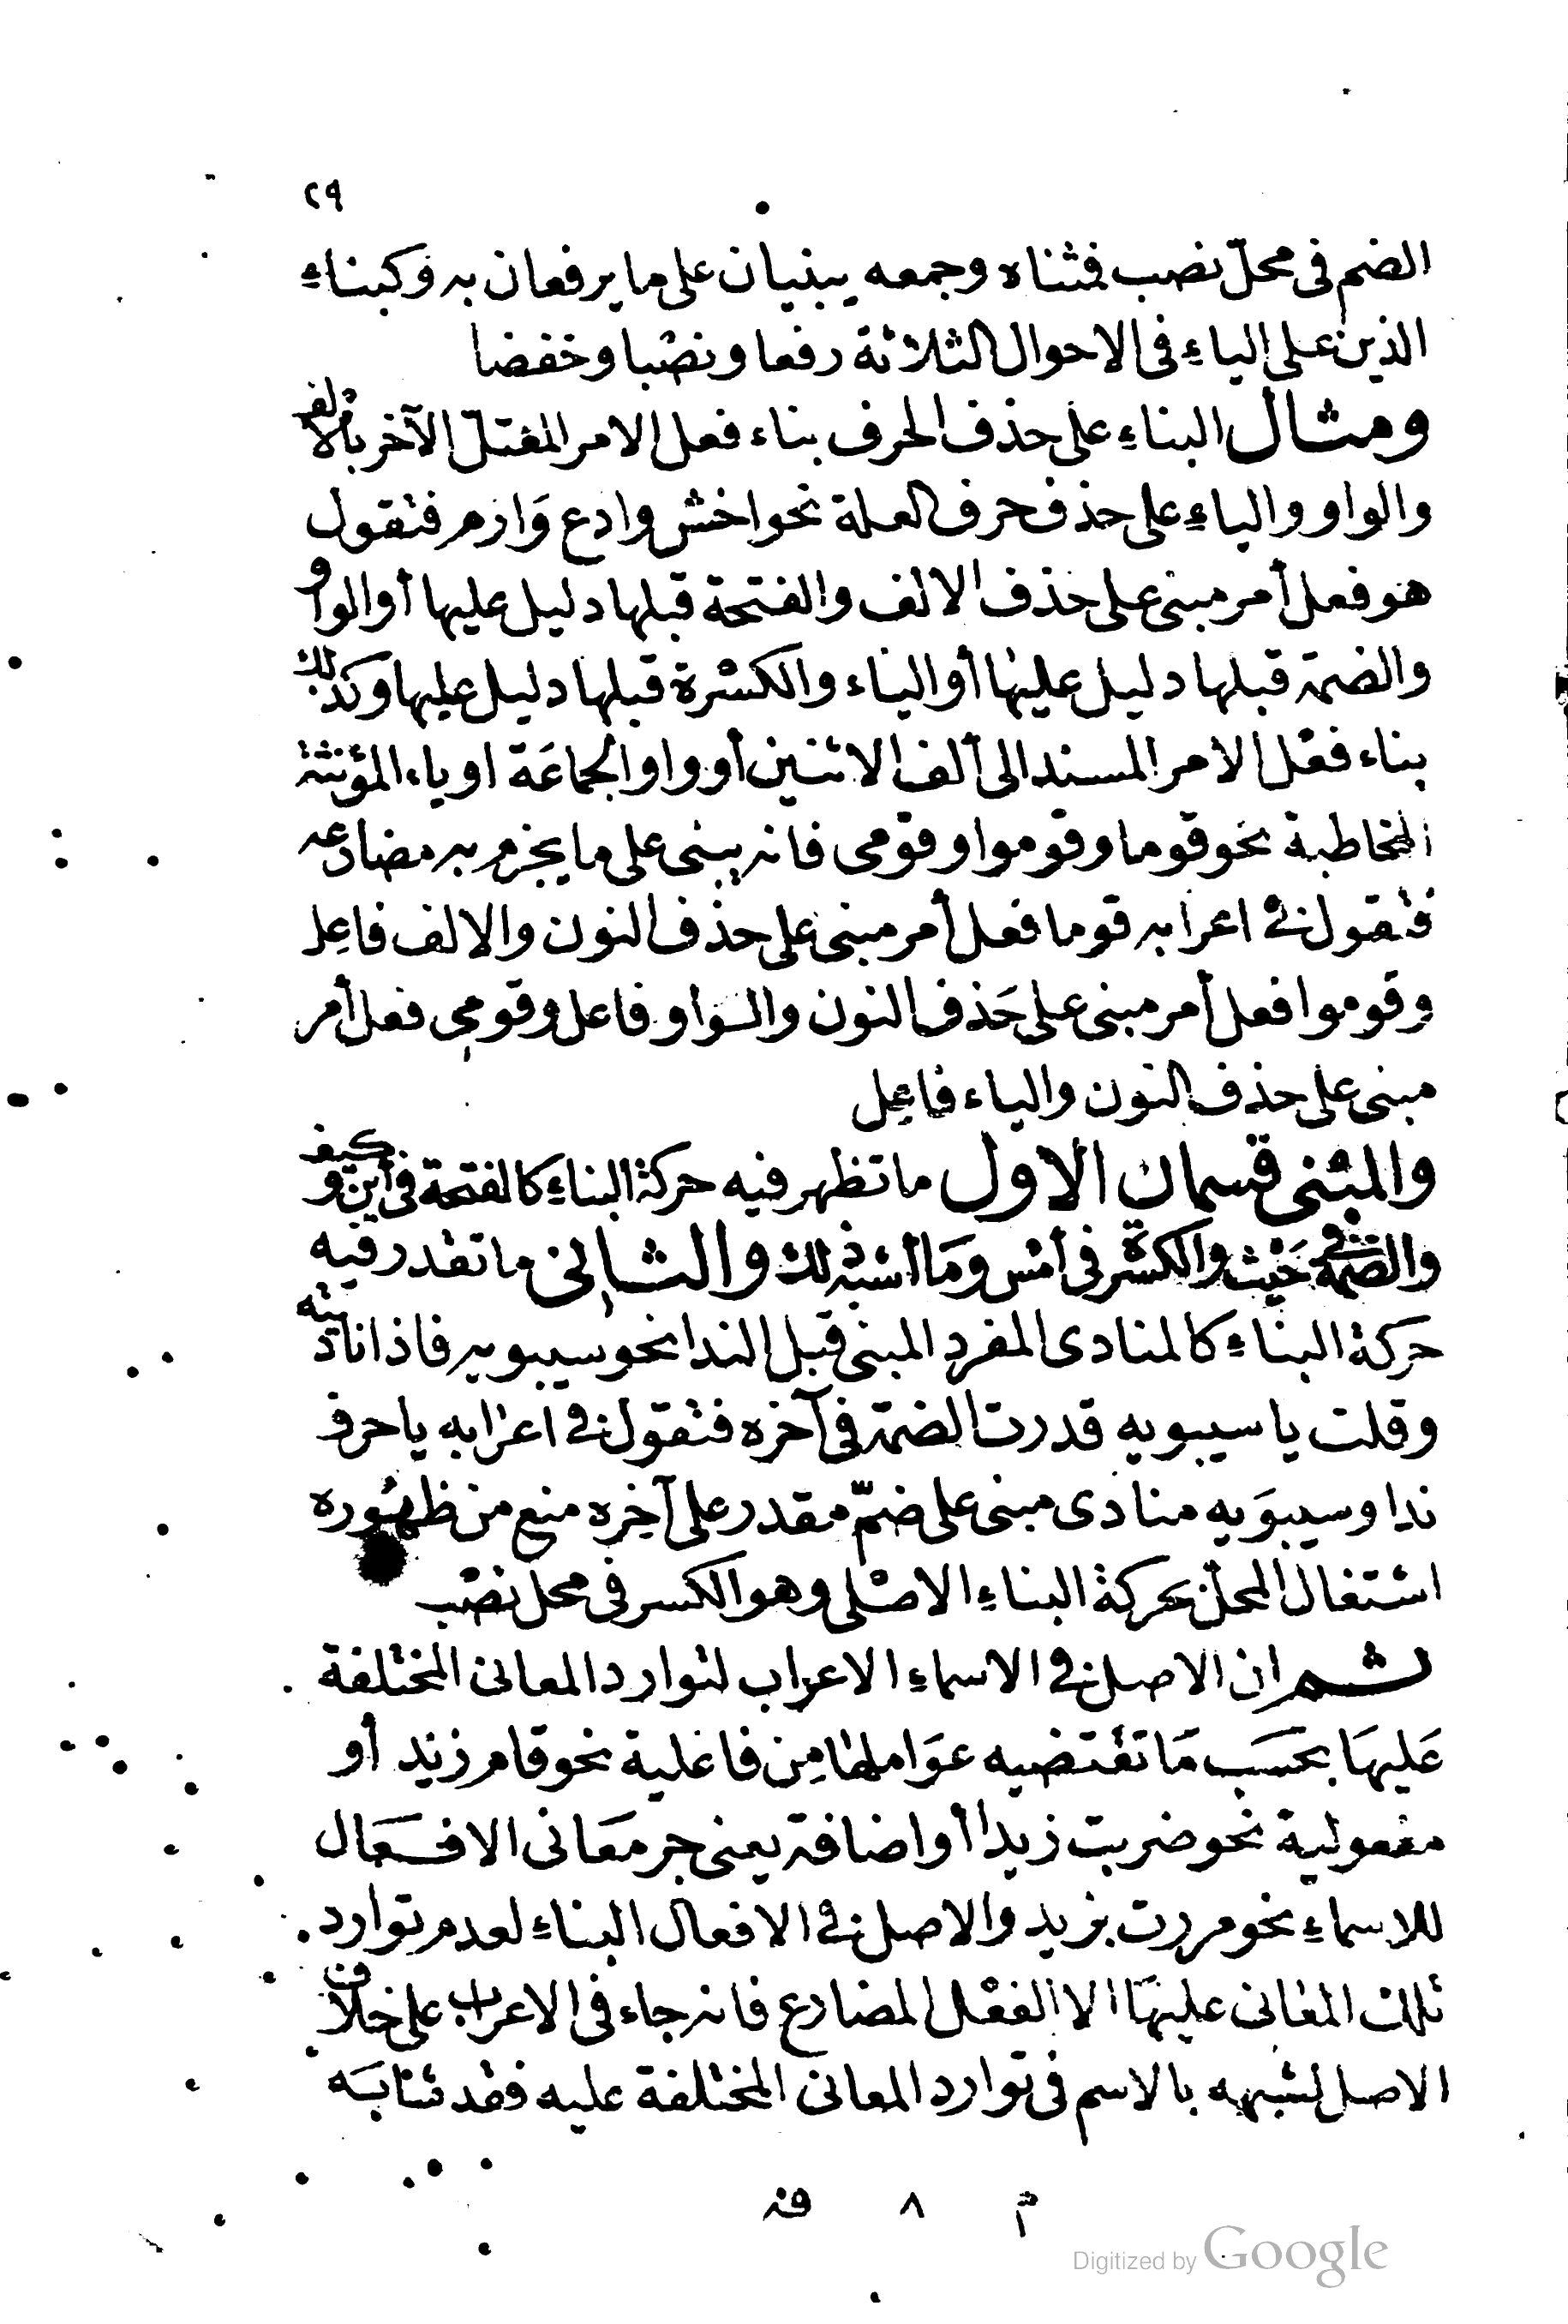 ٢٩
الضم فى محلّ نصب فمثناه وجمعه يبنيان على ما يرفعان به وكبناءِ
الذين على الياءِ فى الاحوال الثلاثة رفعا ونصْبا وخفضا
ومثال البناءِ على حذف الحرف بناء فعل الامر المعتلّ الآخر بالالف
والواو والياءِ على حذف حرف العلة نحو اخش وادع وَارم فتقول
هو فعل أمر مبنى على حذف الالف والفتحة قبلها دليل عليها أو الواو
والضمة قبلها دليل عليها أو الياء والكسْرة قبلها دليل عليها وكذلك
بناء فعْل الامر المسند الى ألف الاثنين أو واو الجماعَة او ياء المؤنثة
المخاطبة نحو قوما وقوموا وقومى فانه يبنى على ما يجزم به مضارعه
فتقول فى اعرابه قوما فعل أمر مبنى على حذف النون والالف فاعِل
وقوموا فعل أمر مبنى على حَذف النون والواو فاعل وقومِى فعل أمر
مبنى على حذف النون والياء فاعِل
والمبْنى قسمان الاول ما تظهر فيه حركة البناءِ كالفتحة فى أين وكيف
والضمة فى حَيْث والكسْرة فى أمْس وَمَا أشبْه ذلك والثانى ما تقدر فيه
حركة البناءِ كالمنادى المفرد المبنى قبل الندا نحو سيبويه فاذا ناديته
وقلت يا سيبويه قدرت الضمّة فى آخره فتقول فى اعرابه يا حرف
ندا وسيبوَيه منادى مبنى على ضمّ مقدر على آخِره منع من ظهُوره
اشتغال المحلّ بحركة البناءِ الاصْلى وهو الكسر فى محل نصْب
ثم ان الاصل فى الاسماءِ الاعراب لتوارد المعانى المختلفة
عَليهَا بحَسَب مَا تقْتضيه عوَاملها مِن فاعلية نحو قام زيْد أو
مفعولية نحو ضربت زيدا أو اضافة يعنى جر مَعَانى الافعَال
للاسماءِ نحو مررت بزيد والاصل فى الافعال البناءِ لعدم توارد
تلك المعَانى عليهَا الا الفعْل المضارع فانه جاء فى الاعراب على خلاف
الاصل لشبهه بالاسم فى توارد المعانى المختلفة عليه فقد تشابَه
م ٨ فد
Digitized by Google